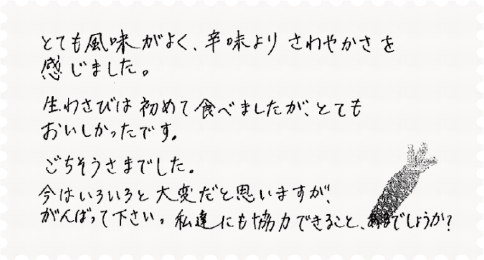 とても風味がよく、辛味より さわやかさを
感じました。
生わさびは初めて食べましたが、とても
おいしかったです。
ごちそうさまでした。
今はいろいろと大変だと思いますが、
がんばって下さい。私達にも協力できること、あるでしょうか?